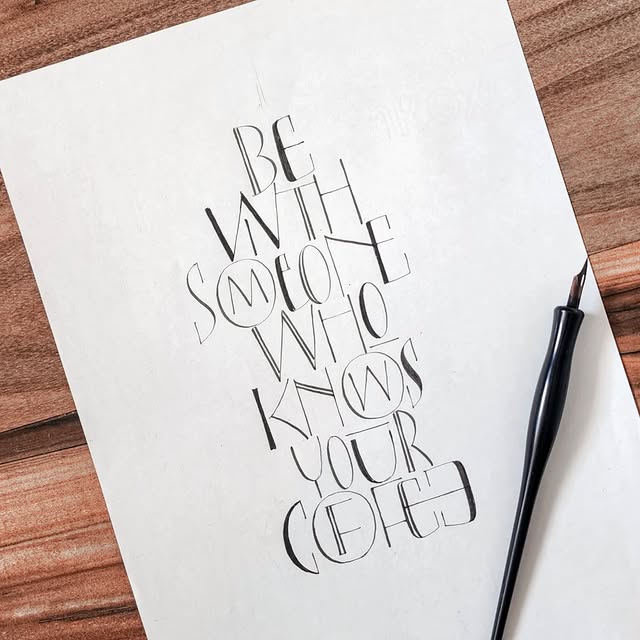 BE
WITH
SOMEONE
WHO
KNOWS
YOUR
COFFEE